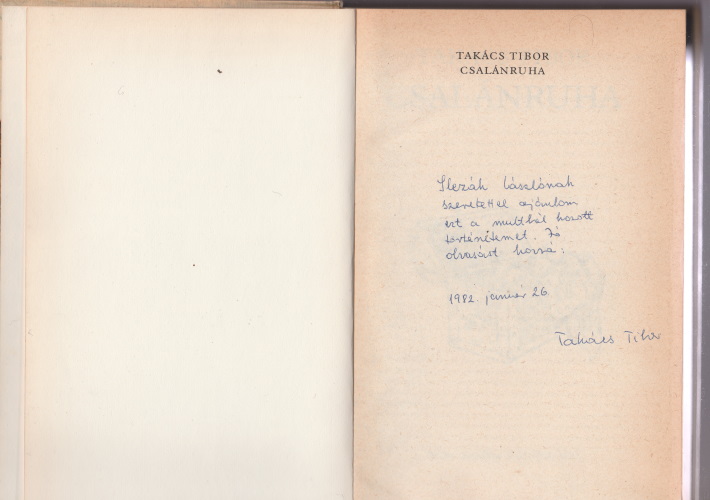 TAKÁCS TIBOR
CSALÁNRUHA
Slezák Lászlónak
szeretettel ajánlom
ezt a multból hozott
történetemet. Jó
olvasást hozzá:
1982. január 26.
Takács Tibor